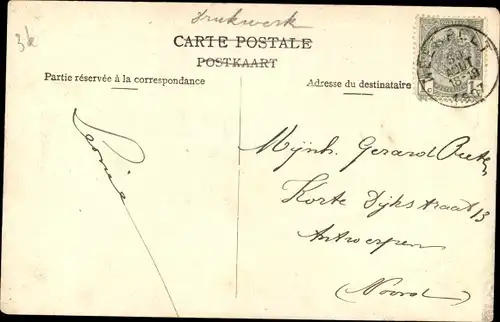 3k
Drukwerk
CARTE POSTALE
POSTKAART
Partie réservée à la correspondance
Adresse du destinataire
Leonie
Mijnh. Gerard
Korte Dijkstraat 13
Antwerpen
(Noord)